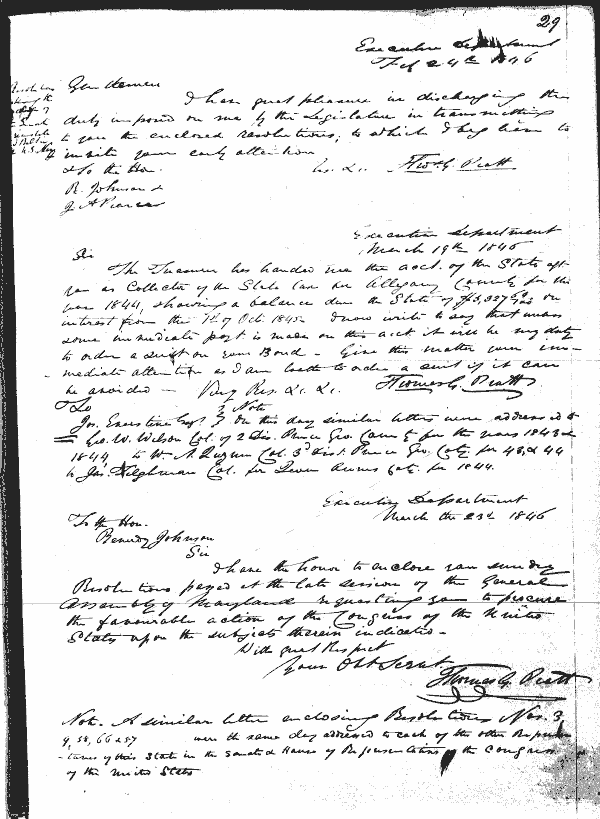 29
Executive Department
Feb 24th 1846
Gentlemen
I have great pleasure in discharging the
duty imposed on me by the Legislature in transmitting
to you the enclosed resolutions, to which I beg leave to
invite your early attention
&c. &c. Tho. G. Pratt
To the Hon.
R. Johnson &
J. A. Pearce
Executive Department
March 19th 1846
Sir
The Treasurer has handed me the acct. of the State agt.
you as Collector of the State tax for Allegany County for the
year 1844, shewing a balance due the State of on
interest from the 1st of Oct. 1845. I now write to say that unless
some immediate payt is made on this acct it will be my duty
to order a suit on your Bond - Give this matter your im-
mediate attention as I am loath to order a suit if it can
be avoided - Very Res. &c. &c. Thomas G. Pratt
To Note
On this day similar letters were addressed to
Geo. W. Wilson Col. of 2 Dis. Prince Geo. County for the years 1843 &
1844, to W. A. Col. 3d Dist. Prince Geo. Cty. for 43, & 44
to Jas. Tilghman Col. for Queen Annes Cty. for 1844.
Executive Department
March the 23d 1846
To the Hon.
Reverdy Johnson
Sir
I have the honor to enclose you sundry
Resolutions passed at the late session of the General
Assembly of Maryland requesting you to procure
the favourable action of the Congress of the United
States upon the subjects therein indicated -
With great Respect
Your Obt Servt
Thomas G. Pratt
Note. A similar letter enclosing Resolutions Nos. 3,
9, 58, 66 & 87 were the same day addressed to each of the other Represen
-tatives of this State in the Senate & House of Representatives of the Congress
of the United States